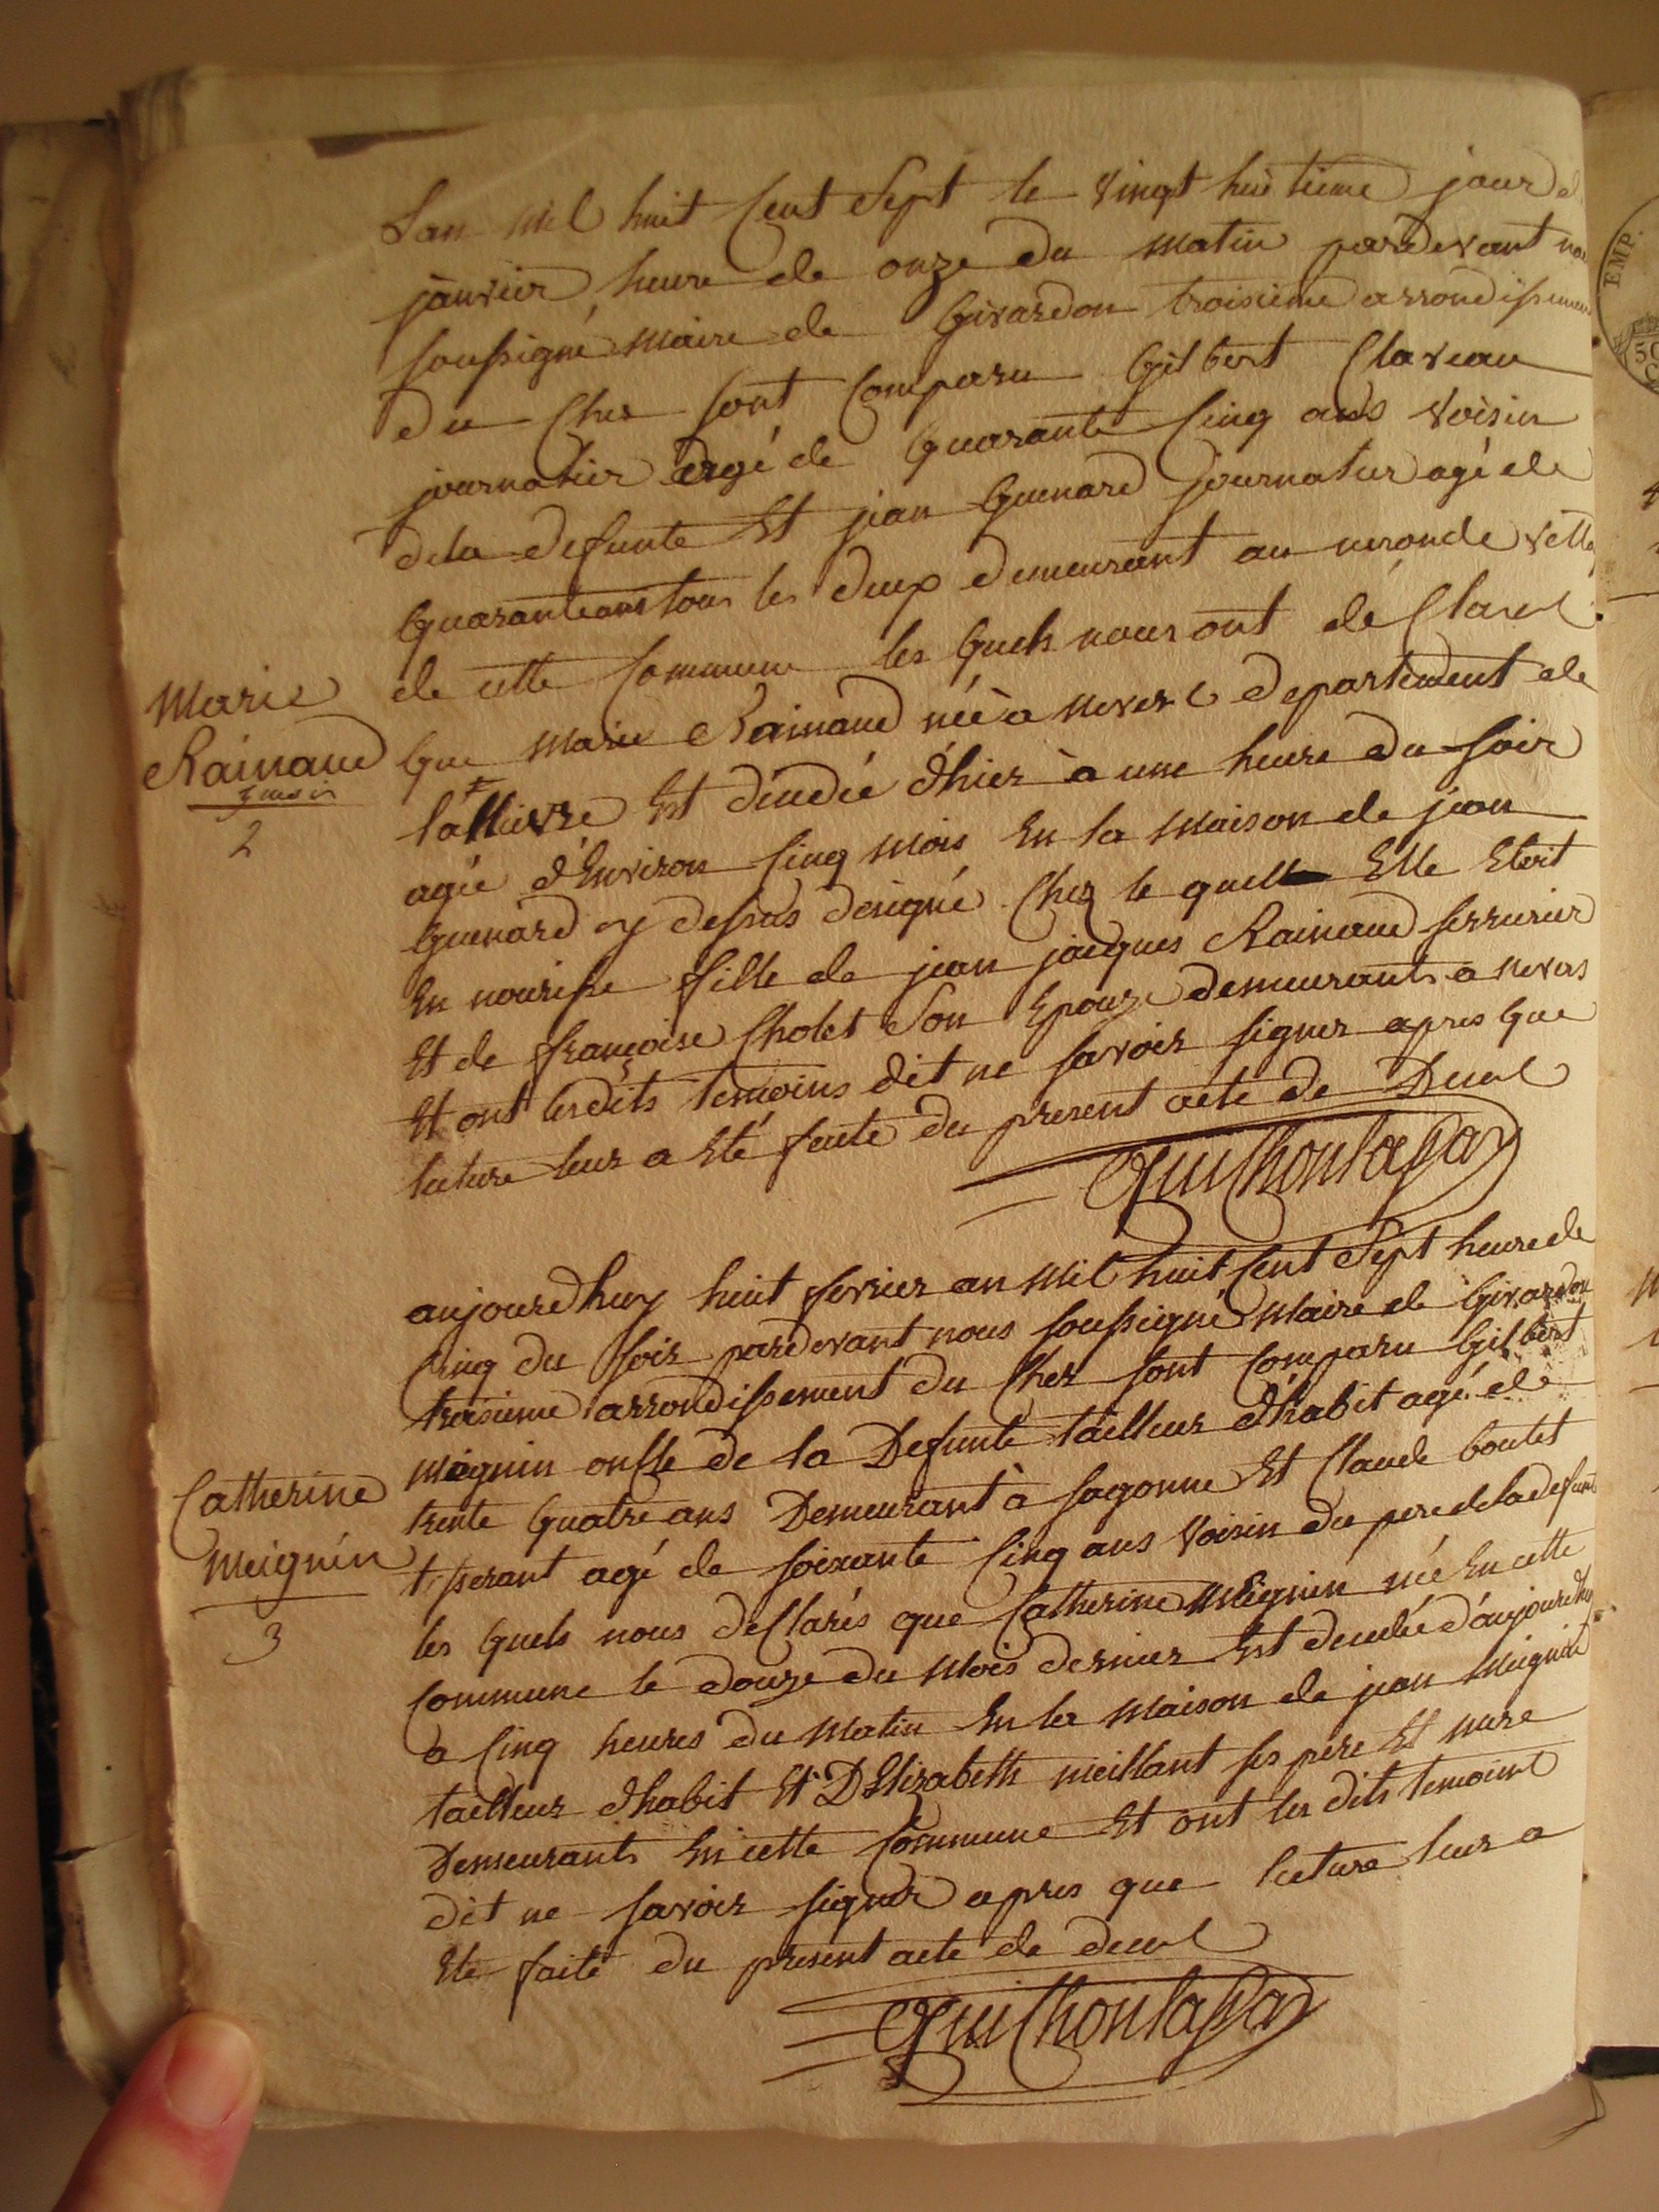 L'an mil huit Cent Sept le vingt huitieme jour
janvier heure de onze du matin pardevant
soussigné maire de Givardon troisieme arrondissement
du Cher sont Comparu Gilbert Claveau
journalier agé de Quarante Cinq ans voisin
dela defunte Et jean Guenard journalier agé de
Quarante ans tous les deux demeurant au
de cette Commune les Quels nous ont déClaré
Marie
Rainaud
5 mois
2
Que Marie Rainaud née à nevers departement de
la Nievre Est décédée d'hier à une heure du soir
agée d'Environ Cinq mois En la maison de jean
Guenard cy dessus designé Chez le quel Elle Etoit
En nourisse fille de jean jacques Rainaud serrurier
Et de françoise Cholet Son Epouze demeurants a nevers
Et ont lesdits temoins dit ne savoir signer apres Que
lecture leur a Eté faite du present acte de Decel
Guilhonlassay
aujourdhuy huit fevrier an mil huit Cent Sept heure de
Cinq du soir pardevant nous soussigné Maire de Givardon
troisieme arrondissement du Cher sont Comparu Gilbert
meignin onCle de la Defunte tailleur d'habit agé de
trente Quatre ans Demeurant à sagonne Et Claude boutet
tisserant agé de soixante Cinq ans Voisin du pere dela defunte
Catherine
Meignin
3
les Quels nous deClarés que Catherine Meignin née En cette
Commune le douze du mois dernier Est decedée d'aujourdhuy
a Cinq heures du matin En la maison de jean Meignin
tailleur d'habit Et D'Elizabeth meillant ses pere Et mere
Demeurants En cette Commune Et ont les dits temoins
dit ne savoir signer apres que lecture leur a
Eté faite du present acte de decel
Guilhonlassay
EMP.